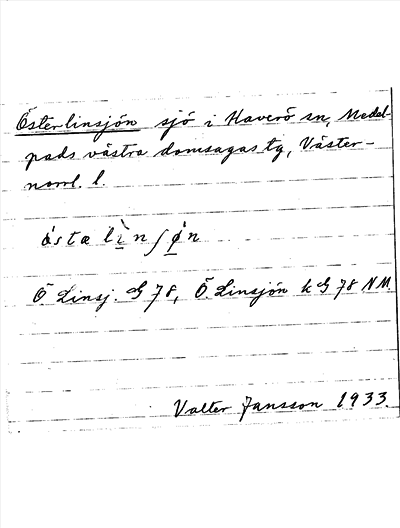 Österlinsjön sjö i Haverö sn, Medel-
pads västra domsagas tg, Väster-
norrl. l.
östa lìnʃǿn
Ö Linsj. G 78, Ö. Linsjön k G 78 NM.
Valter Jansson 1933.